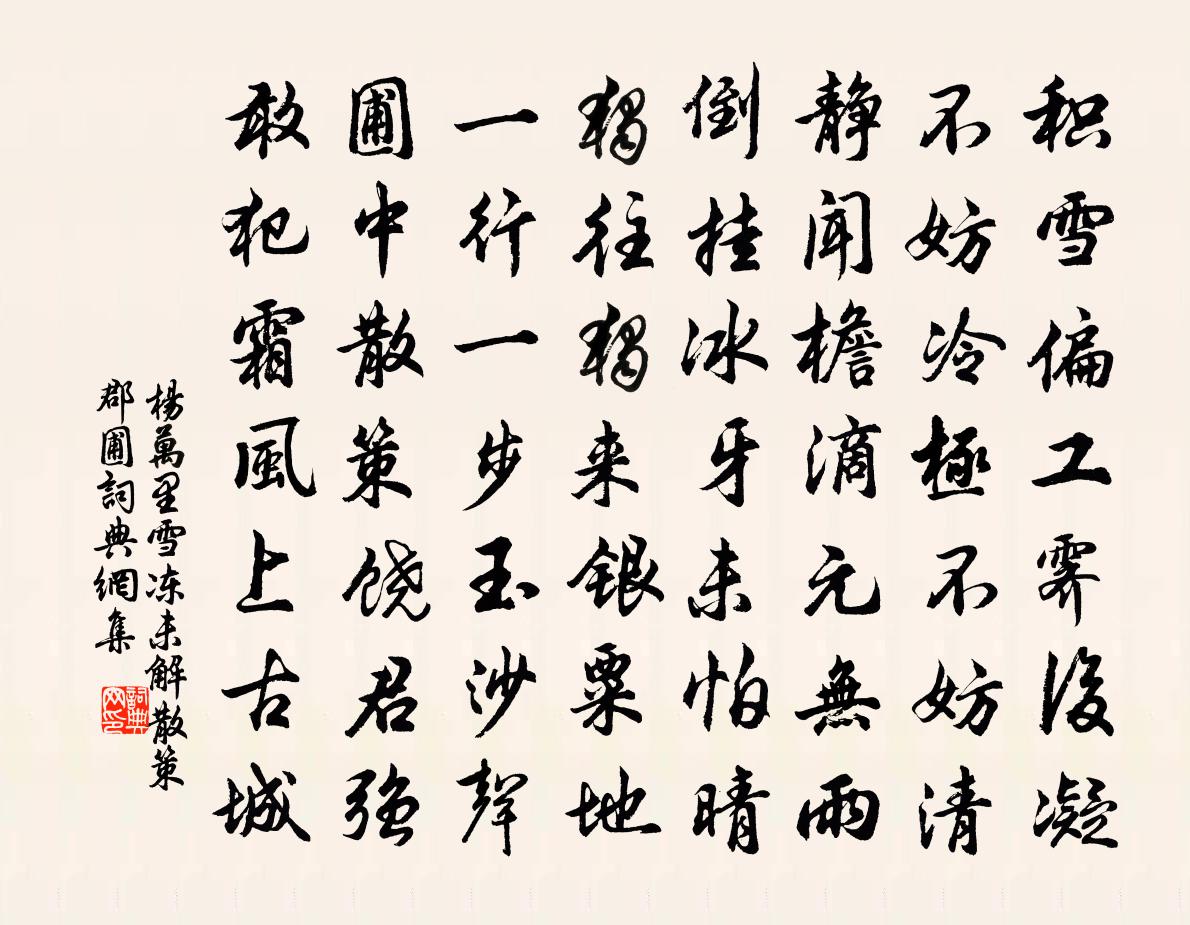 积雪偏工霁後凝
不妨冷極不妨清
静闻檐滴元無雨
倒挂冰牙未怕晴
獨往獨来銀粟地
一行一步玉沙聲
圃中散策饶君强
敢犯霜風上古城
楊萬里雪冻未解散策
郡圃詞典網集
詞典网印